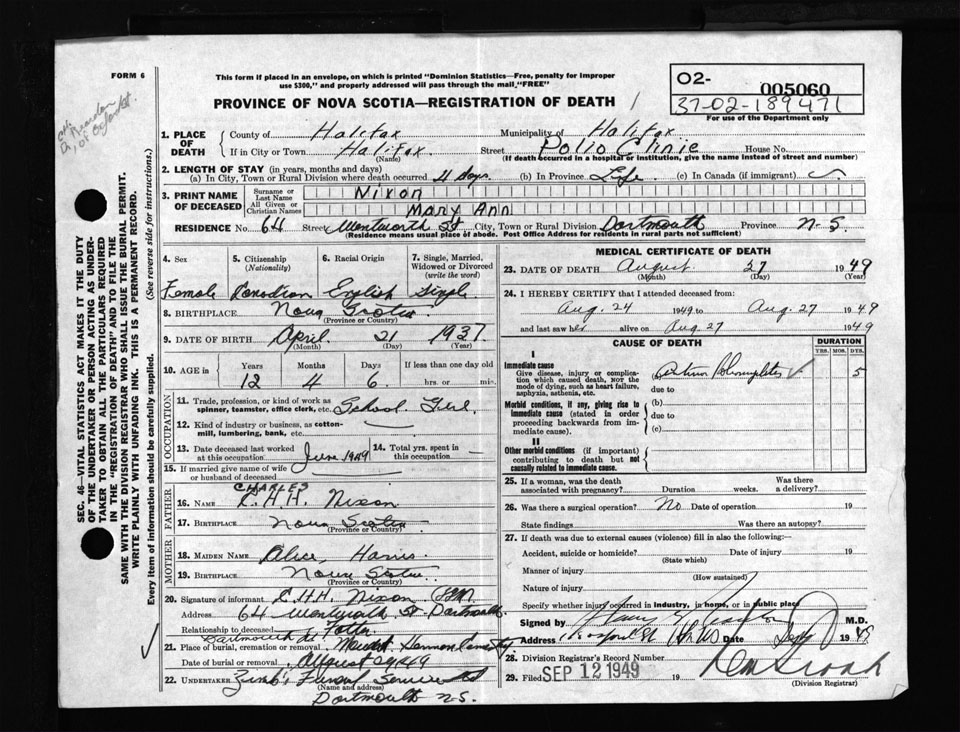 FORM 6
This form if placed in an envelope, on which is printed "Dominion Statistics—Free, penalty for improper
use $300," and properly addressed will pass through the mail "FREE"
PROVINCE OF NOVA SCOTIA—REGISTRATION OF DEATH
O2- 005060
37-02-189471
For use of the Department only
1. PLACE OF DEATH
County of Halifax Municipality of Halifax
If in City or Town Halifax Street Polio Clinic House No.
(Name) (If death occurred in a hospital or institution, give the name instead of street and number)
2. LENGTH OF STAY (in years, months and days)
(a) In City, Town or Rural Division where death occurred 4 days. (b) In Province Life (c) In Canada (if immigrant)
3. PRINT NAME OF DECEASED
Surname or Last Name Nixon
All Given or Christian Names Mary Ann
RESIDENCE No. 64 Street Wentworth St City, Town or Rural Division Dartmouth Province N.S.
(Residence means usual place of abode. Post Office Address for residents in rural parts not sufficient)
4. Sex 5. Citizenship (Nationality) 6. Racial Origin 7. Single, Married, Widowed or Divorced (write the word)
Female Canadian English Single
8. BIRTHPLACE Nova Scotia
(Province or Country)
9. DATE OF BIRTH April 21 1937
(Month) (Day) (Year)
10. AGE in Years Months Days If less than one day old
12 4 6 hrs. or min.
OCCUPATION
11. Trade, profession, or kind of work as spinner, teamster, office clerk, etc. School Girl
12. Kind of industry or business, as cotton-mill, lumbering, bank, etc.
13. Date deceased last worked at this occupation June 1949 14. Total yrs. spent in this occupation
15. If married give name of wife or husband of deceased
FATHER
CHARLES
16. Name C. H. H. Nixon
17. Birthplace Nova Scotia
(Province or Country)
MOTHER
18. MAIDEN NAME Alice Harris
19. BIRTHPLACE Nova Scotia
(Province or Country)
20. Signature of informant C.H.H. Nixon
Address 64 Wentworth St. Dartmouth
Relationship to deceased Father
Dartmouth
21. Place of burial, cremation or removal Mount Hermon Cemetery
Date of burial or removal August 29 1949
22. UNDERTAKER Funeral Service
(Name and address)
Dartmouth N.S.
MEDICAL CERTIFICATE OF DEATH
23. DATE OF DEATH August 27 1949
(Month) (Day) (Year)
24. I HEREBY CERTIFY that I attended deceased from:
Aug. 24 1949 to Aug. 27 1949
and last saw her alive on Aug 27 1949
CAUSE OF DEATH
DURATION
YRS. MOS. DYS.
I
Immediate cause
Give disease, injury or complication which caused death, NOT the mode of dying, such as heart failure, asphyxia, asthenia, etc.
(a) 5
due to
Morbid conditions, if any, giving rise to immediate cause (stated in order proceeding backwards from immediate cause).
(b)
due to
(c)
II
Other morbid conditions (if important) contributing to death but not causally related to immediate cause.
25. If a woman, was the death associated with pregnancy? Duration weeks. Was there a delivery?
26. Was there a surgical operation? No Date of operation 19
State findings Was there an autopsy?
27. If death was due to external causes (violence) fill in also the following:—
Accident, suicide or homicide? Date of injury 19
(State which)
Manner of injury
(How sustained)
Nature of injury
Specify whether injury occurred in industry, in home, or in public place
Signed by M.D.
Address Date 19
28. Division Registrar's Record Number
29. Filed SEP 12 1949 19
(Division Registrar)
SEC. 46—VITAL STATISTICS ACT MAKES IT THE DUTY
OF THE UNDERTAKER OR PERSON ACTING AS UNDER-
TAKER TO OBTAIN ALL THE PARTICULARS REQUIRED
IN THE "REGISTRATION OF DEATH" AND TO FILE THE
SAME WITH THE DIVISION REGISTRAR WHO SHALL ISSUE THE BURIAL PERMIT.
WRITE PLAINLY WITH UNFADING INK. THIS IS A PERMANENT RECORD.
Every item of information should be carefully supplied. (See reverse side for instructions.)